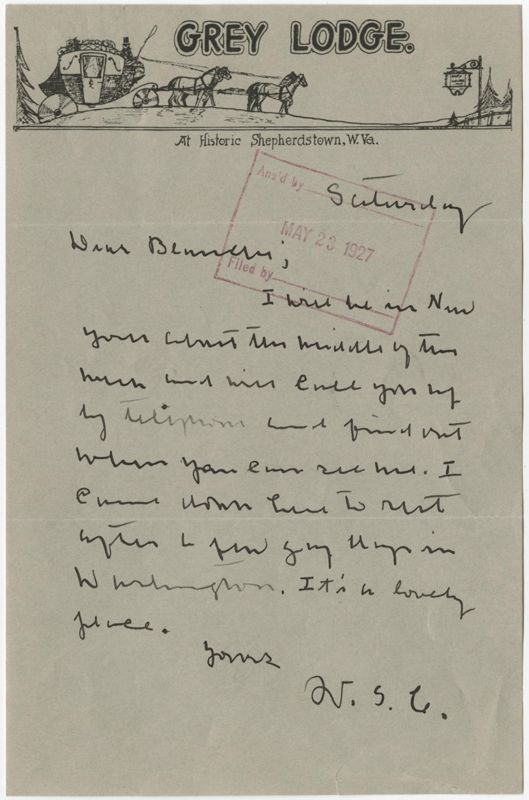 GREY LODGE.
At Historic Shepherdstown, W.Va.
Ans'd by
MAY 23 1927
Filed by
Saturday
Dear
I will be in New
York about the middle of the
week and will call you up
by telephone and find out
when you can see me. I
came down here to rest
after a few gay days in
Washington. It's a lovely
place.
Yours
W. S. C.